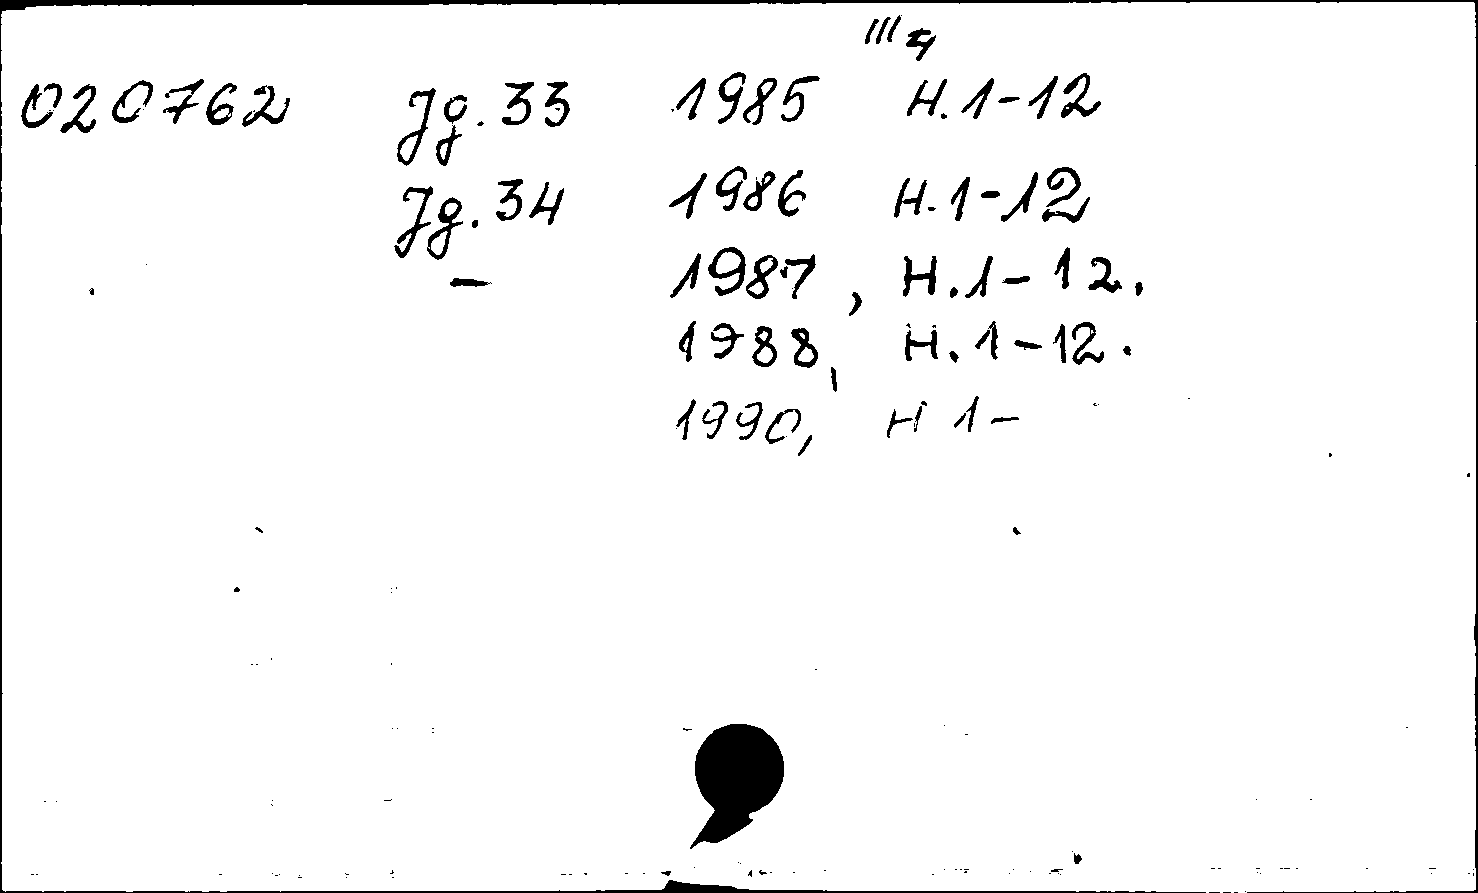 III
020762 Jg. 33 1985 H. 1-12
Jg. 34 1986 H. 1-12
– 1987, H. 1-12.
1988, H. 1-12.
1990, H 1-